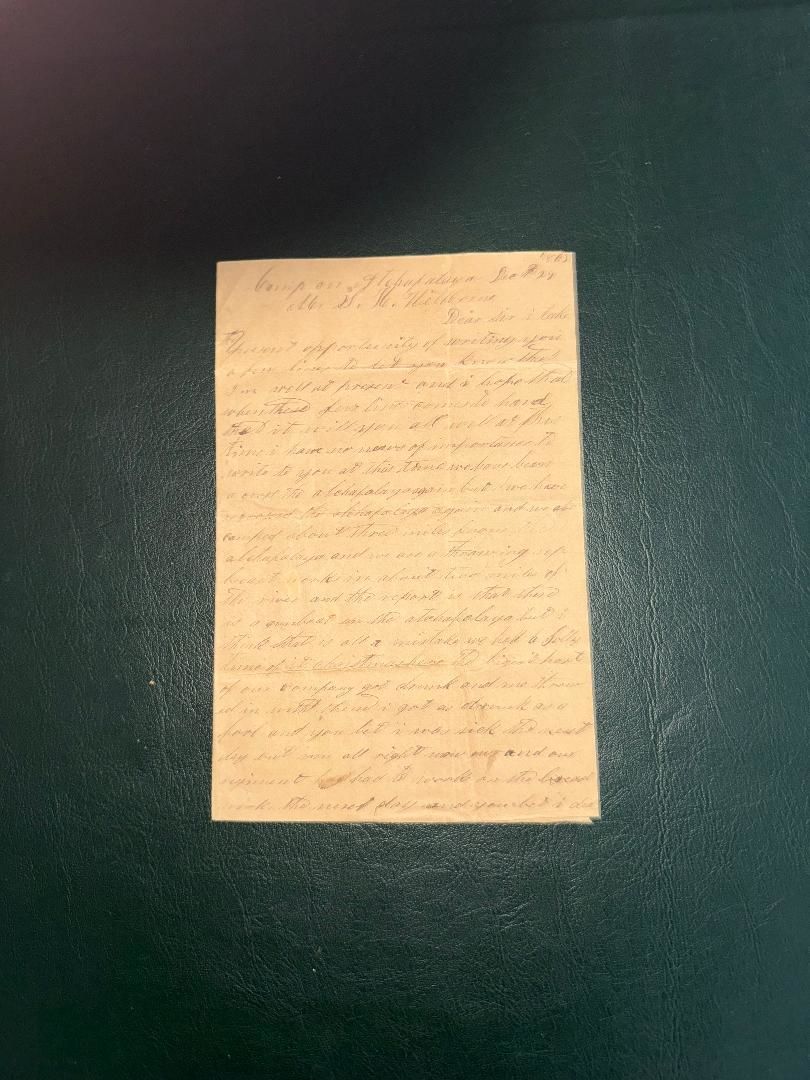 1863
Camp on Atchapalaya Dec the 29
Mr. D. H.
Dear Sir i take
present opportunity of writing you
a few lines to let you know that
I'm well at present and i hope that
when these few lines comes to hand
it will you all well at this
time i have no news of importance to
write to you at this time we have been
a cross the atchapalaya again but we have
the atchapalaya again and we are
camped about three miles from
atchapalaya and we are a throwing up
breast works in about two miles of
the river and the report is that there
is a gunboat in the atchapalaya but i
think that is all a mistake we had a jolly
time of it christmas here the bigist part
of our company got drunk and me throw
ed in with them i got as drunk as a
fool and you bet i was sick the next
day but um all right now and our
regiment had to work on the breast
work the next day and you bet i did